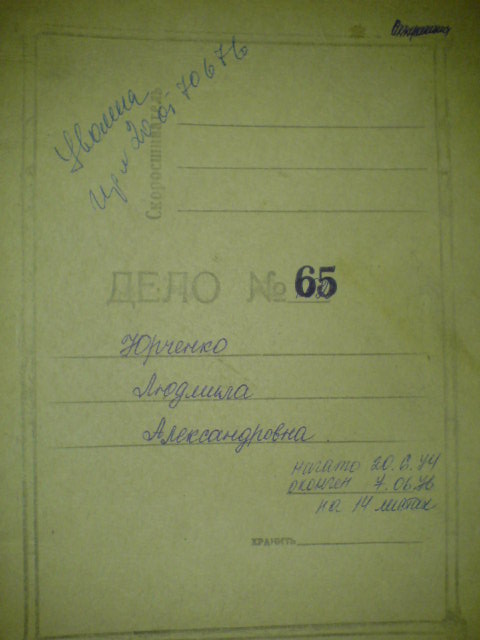 Уволена
Скоросшиватель
ДЕЛО № 65
Юрченко
Людмила
Александровна.
начато 20.6.74
окончен 7.06.76
на 14 листах
ХРАНИТЬ